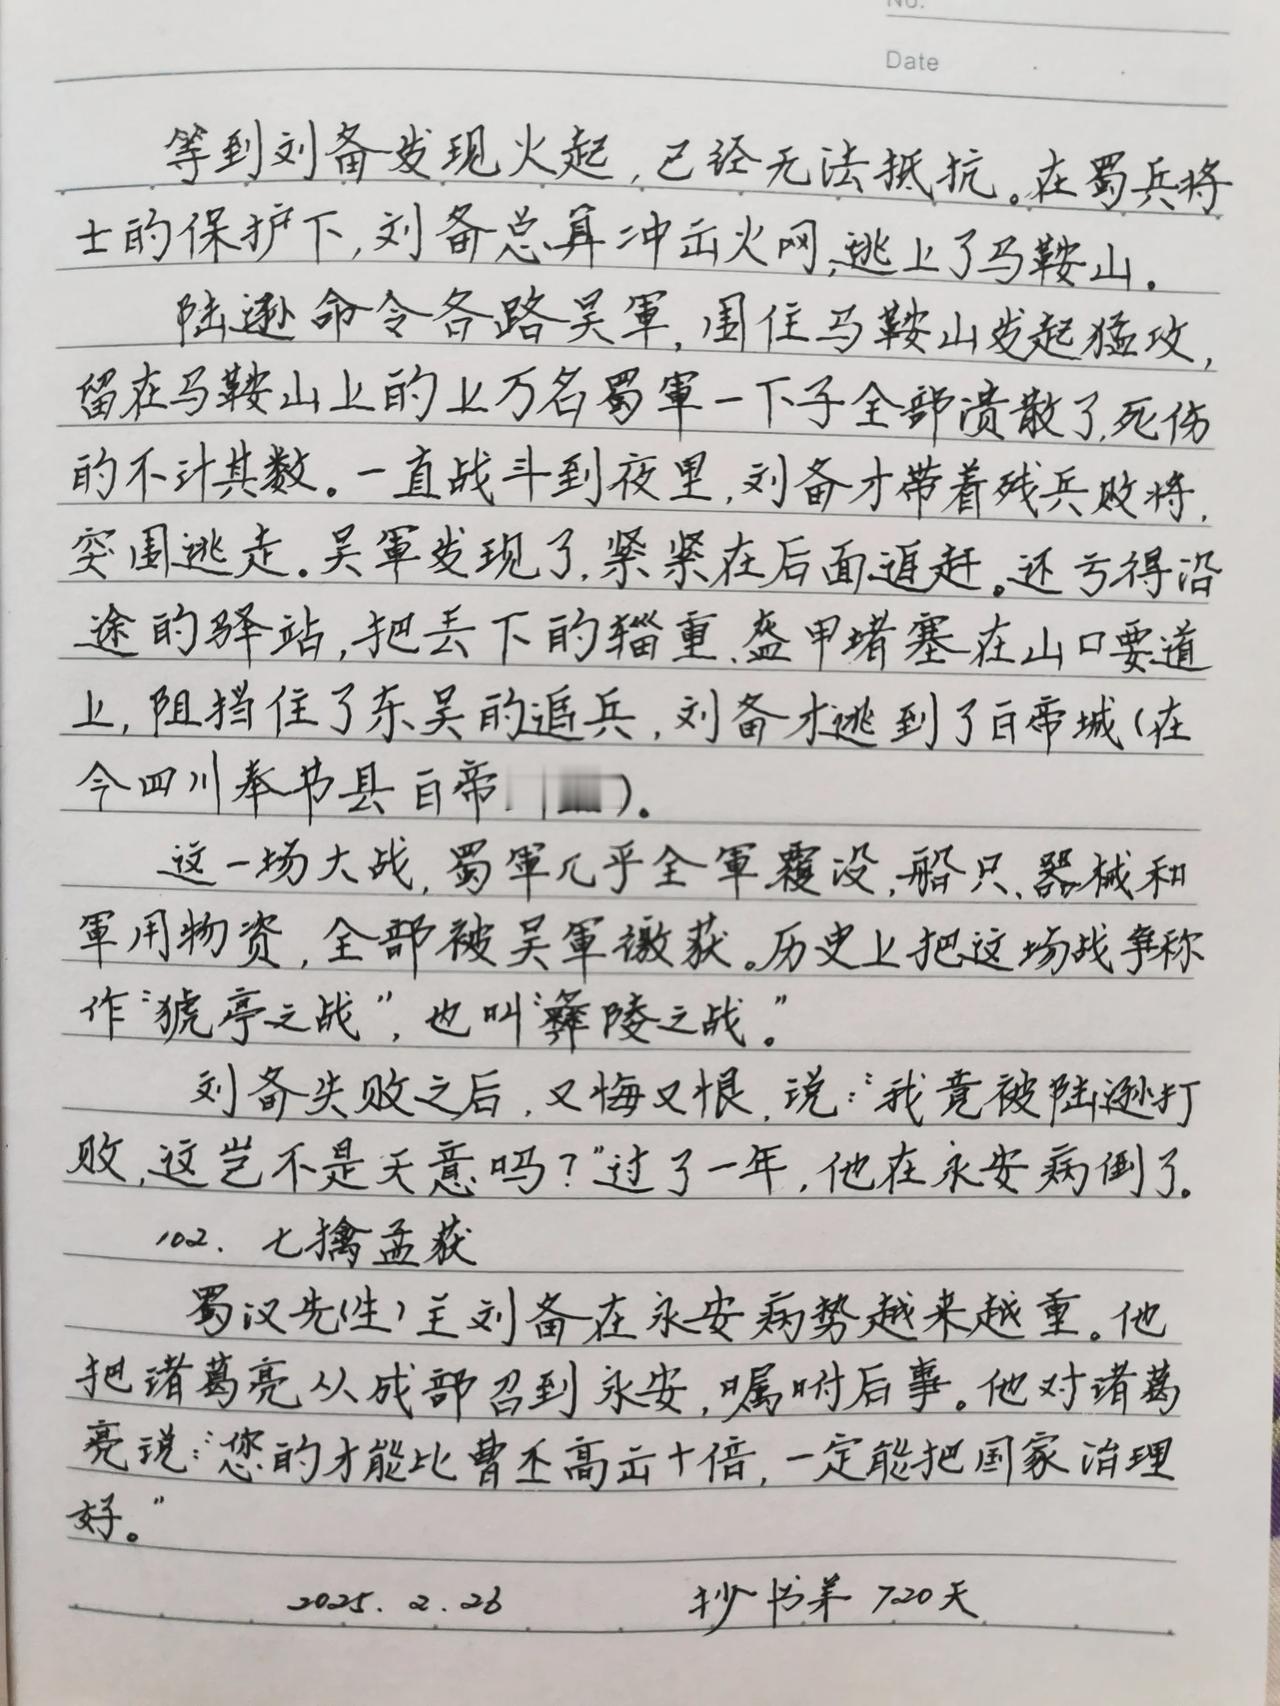 No.
Date
等到刘备发现火起,已经无法抵抗。在蜀兵将
士的保护下,刘备总算冲出火网,逃上了马鞍山。
陆逊命令各路吴軍,围住马鞍山发起猛攻,
留在马鞍山上的上万名蜀軍一下子全部溃散了,死伤
的不计其数。一直战斗到夜里,刘备才带着残兵败将,
突围逃走。吴軍发现了,紧紧在后面追赶。还亏得沿
途的驿站,把丢下的辎重、盔甲堵塞在山口要道
上,阻挡住了东吴的追兵,刘备才逃到了白帝城(在
今四川奉节县白帝)。
这一场大战,蜀軍几乎全軍覆没,船只、器械和
軍用物资,全部被吴軍缴获。历史上把这场战争称
作“猇亭之战”,也叫“彝陵之战。”
刘备失败之后,又悔又恨,说:“我竟被陆逊打
败,这岂不是天意吗?”过了一年,他在永安病倒了。
102. 七擒孟获
蜀汉先(生)主刘备在永安病势越来越重。他
把诸葛亮从成都召到永安,嘱咐后事。他对诸葛
亮说:“您的才能比曹丕高出十倍,一定能把国家治理
好。”
2025.2.26 抄书第720天